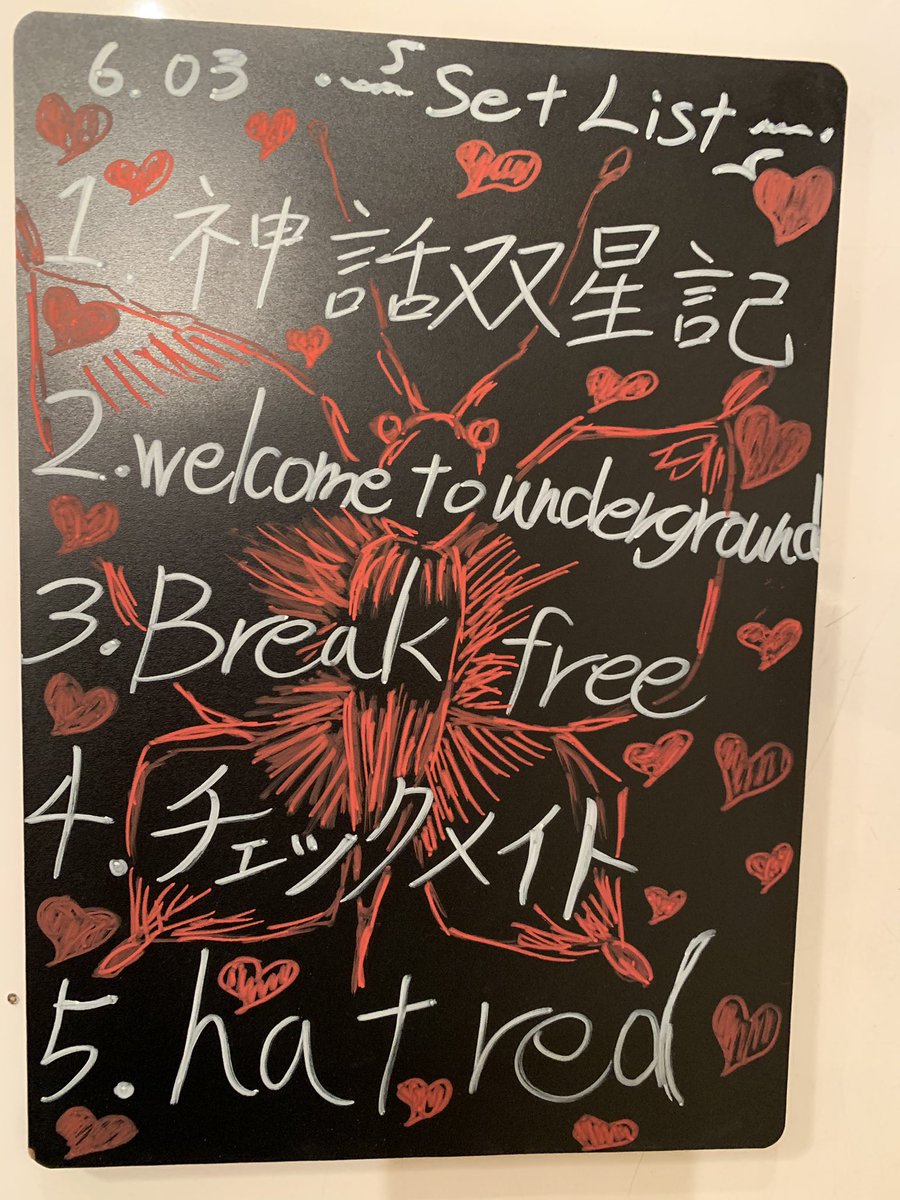 6.03 Set List
1. 神話双星記
2. welcome to underground
3. Break free
4. チェックメイト
5. hatred